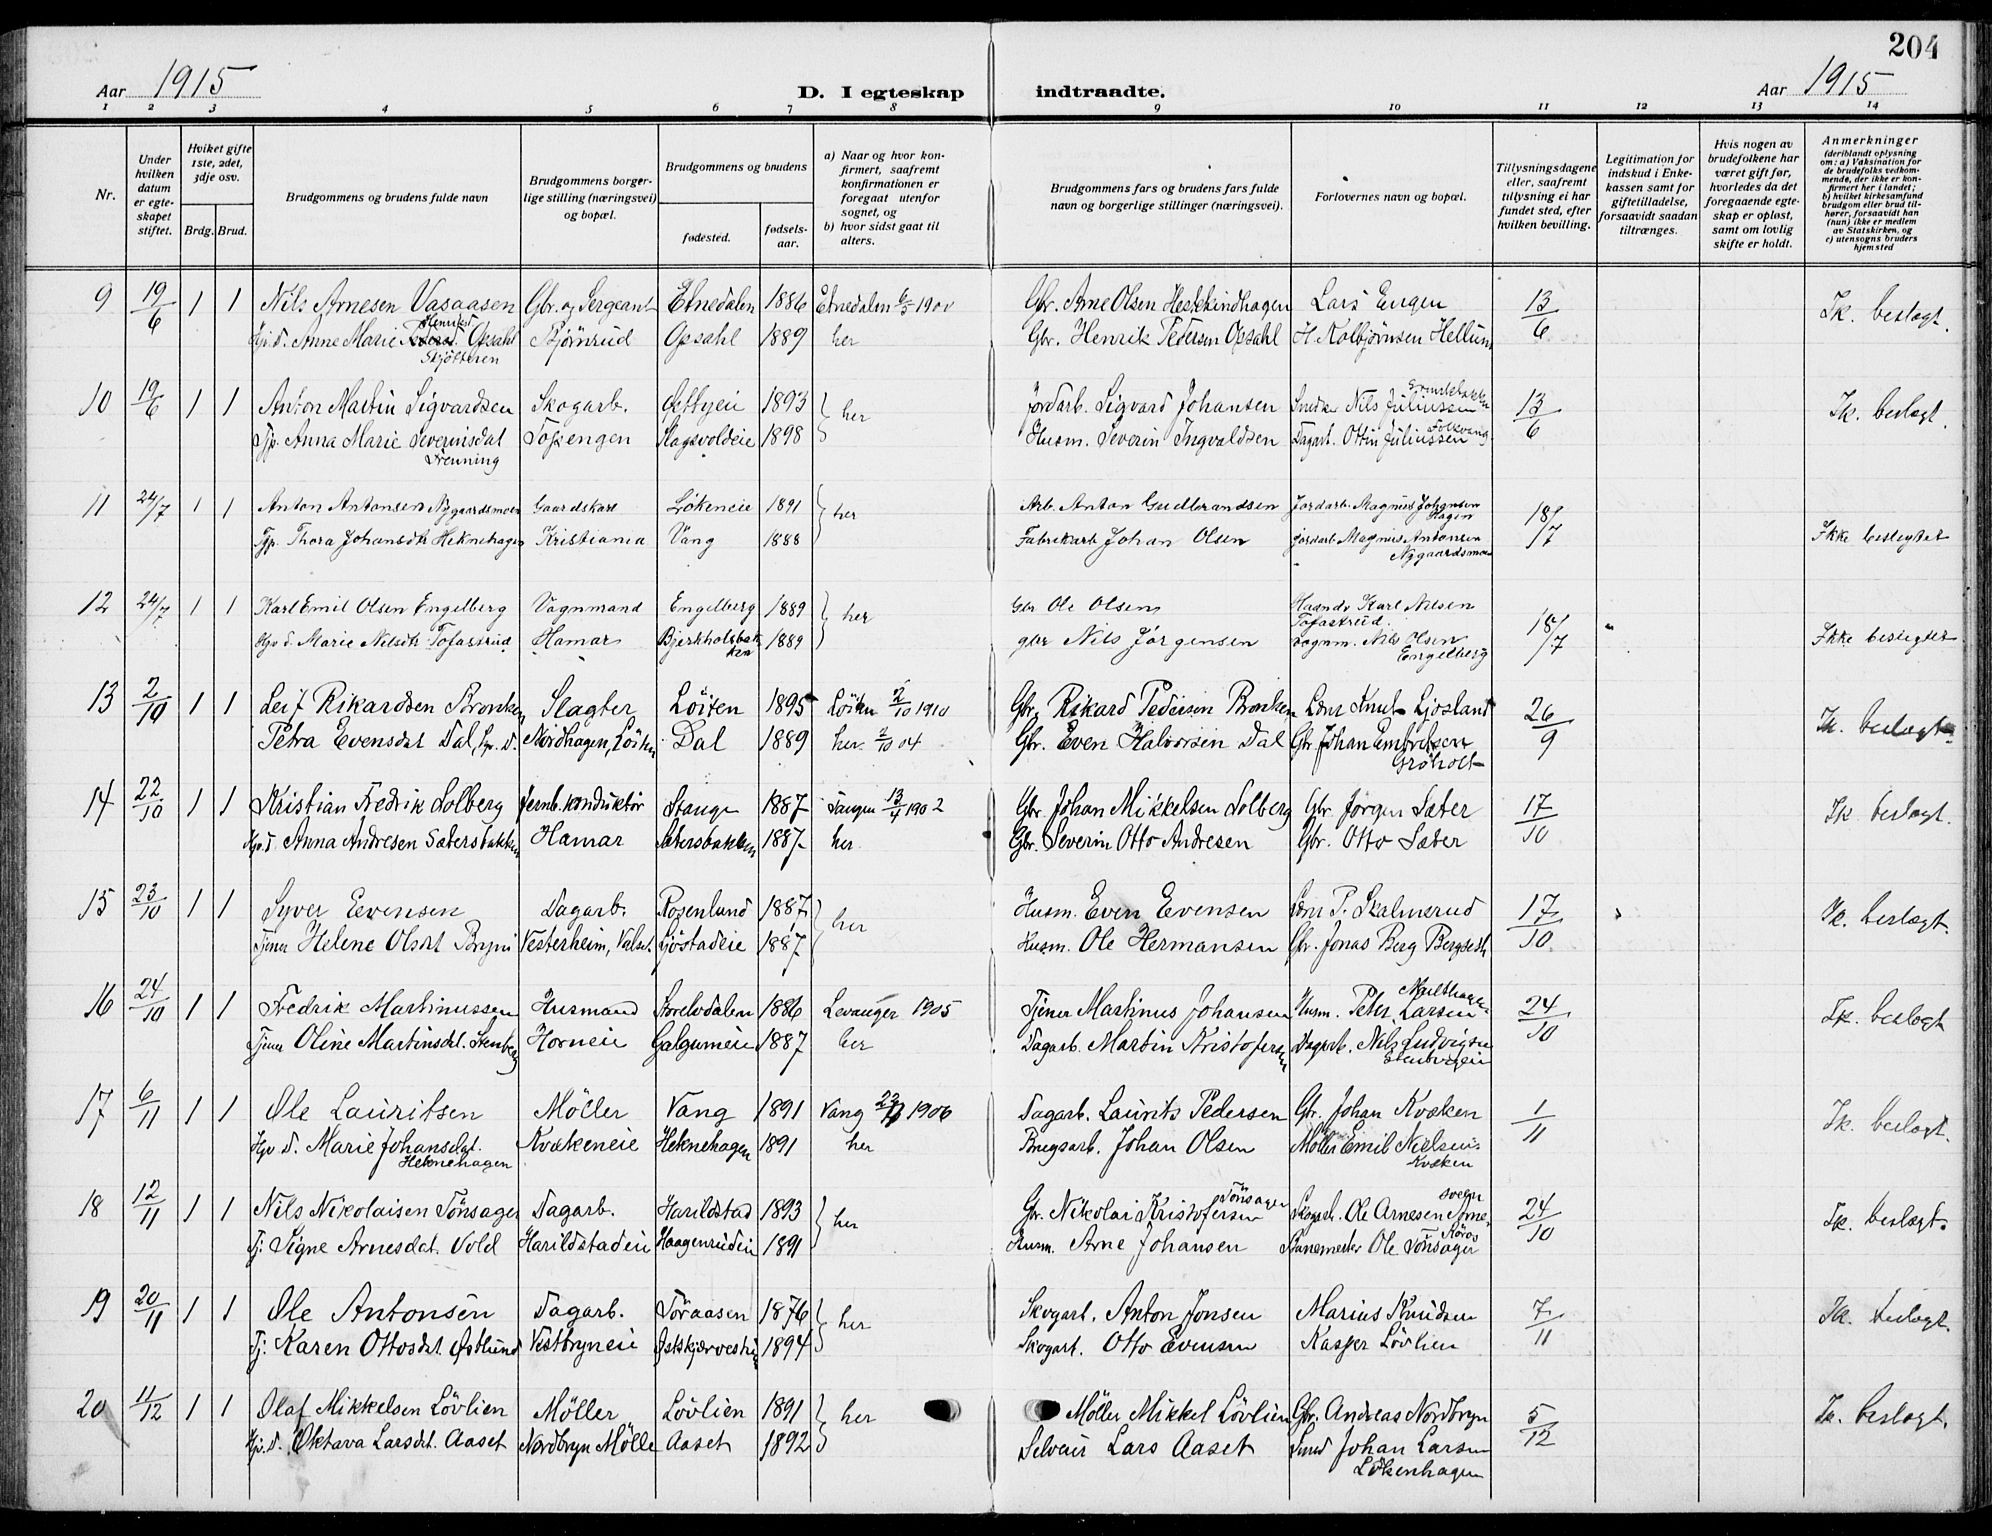 204
Aar 1915
D. I egteskap indtraadte.
Aar 1915
1 2 3 4 5 6 7 8 9 10 11 12 13 14
Nr.
Under hvilken datum er egteskapet stiftet.
Hviket gifte 1ste, 2det, 3dje osv.
Brdg. Brud.
Brudgommens og brudens fulde navn
Brudgommens borgerlige stilling (næringsvei) og bopæl.
Brudgommens og brudens
fødested.
fødselsaar.
a) Naar og hvor konfirmert, saafremt konfirmationen er foregaat utenfor sognet, og
b) hvor sidst gaat til alters.
Brudgommens fars og brudens fars fulde navn og borgerlige stillinger (næringsvei).
Forlovernes navn og bopæl.
Tillysningsdagene eller, saafremt tillysning ei har fundet sted, efter hvilken bevilling.
Legitimation for indskud i Enkekassen samt for giftetilladelse, forsaavidt saadan tiltrænges.
Hvis nogen av brudefolkene har været gift før, hvorledes da det foregaaende egteskap er opløst, samt om lovlig skifte er holdt.
Anmerkninger (deriblandt oplysning om: a) Vaksination for de brudefolks vedkommende, der ikke er konfirmert her i landet; b) hvilket kirkesamfund brudgom eller brud tilhører, forsaavidt han (hun) ikke er medlem av Statskirken, og c) utensogns bruders hjemsted
9 19/6 1 1 Nils Arnesen Vasaasen Gbr. og Sergeant Etnedalen 1886 Etnedalen 1900 Gbr. Arne Olsen Hekkindhagen Lars Engen 13/6 Ik. beslægt.
Hjv. D. Anne Marie Henriksd. Opsahl Bjørnrud Opsahl 1889 her Gbr. Henrik Pedersen Opsahl H. Kolbjørnsen Hellum
10 19/6 1 1 Anton Martin Sigvardsen Skogarb. 1893 her Jordarb. Sigvard Johansen Snedker Nils Juliussen 13/6 Ik. beslægt.
Tjp. Anna Marie Severinsdat Tofsengen Slagsvoldeie 1898 Husm. Severin Ingvaldsen Dagarb. Ottin Juliussen Solvang
Frenning
11 24/7 1 1 Anton Antonsen Nygaardsmoen Gaardskarl Lökeneie 1891 her Arb. Anton Gudbrandsen Jordarb. Magnus Johansen Hagen 18/7 Ikke beslegtet
Tjp. Thora Johansdtr Heknehagen Kristiania Vang 1888 Fabrikarb Johan Olsen Jordarb Magnus Antonsen Nygaardsmoen
12 24/7 1 1 Karl Emil Olsen Engelberg Vognmand Engelberg 1889 her Gbr Ole Olsen Haandv Karl Nilsen Tofastrud. 18/7 Ikke beslegtet
Hjv D. Marie Nilsdtr Tofastrud Hamar Bjerkholsbakken 1889 gbr Nils Jörgensen vognm. Nils Olsen Engelberg
13 2/10 1 1 Leif Rikardsen Bronken Slagter Löiten 1895 Löiten 2/10 1910 Gbr. Rikard Pedersen Bronken Lær Knut Ljosland 26/9 Ik. beslægt.
Petra Evensdat Dal, Hjv. D. Nordhagen, Löiten Dal 1889 her. 2/10 04 Gbr. Even Halvorsen Dal Gbr Johan Embretsen Gröholt
14 22/10 1 1 Kristian Fredrik Solberg Jernb. konduktör Stange 1887 Tangen 13/4 1902 Gbr Johan Mikkelsen Solberg Gbr. Jörgen Sæter 17/10 Ik. beslægt.
Hjv. D. Anna Andresen Sætersbakken Hamar Sætersbakken 1887 her. Gbr. Severin Otto Andresen Gbr. Otto Sæter
15 23/10 1 1 Syver Evensen Dagarb. Rosenlund 1887 her Husm. Even Evensen Lær P. Skalmerud 17/10 Ik. beslægt.
Tjener Helene Olsdt Bryni Vesterheim, Valset Ljöstadeie 1887 Husm. Ole Hermansen Gbr. Jonas Berg Bergseth
16 24/10 1 1 Fredrik Martinussen Husmand Storelvdalen 1886 Levanger 1905 Tjener Martinus Johansen Husm. Peter Larsen 24/10 Ik. beslægt
Tjener Oline Martinsdt. Stenberg Horneie Galgumeie 1887 her Dagarb. Martin Kristofersen Dagarb. Nils Ludvigsen
17 6/11 1 1 Ole Lauritsen Möller Vang 1891 Vang 1906 Dagarb. Laurits Pedersen Gbr. Johan Kvæken 1/11 Ik. beslægt.
Hjv D. Marie Johansdat. Heknehagen Kvækeneie Heknehagen 1891 her Brugsarb. Johan Olsen Möller Emil Nielsen Kvæken
18 12/11 1 1 Nils Nikolaisen Tönsager Dagarb. Harildstad 1893 her Gbr. Nikolai Kristofersen Tönsager Skogarb. Ole Arnesen 24/10 Ik. beslægt.
Tj: Signe Arnesdat. Vold Harildstadeie Haagenrudeie 1891 Husm. Arne Johansen Banemester Ole Tönsager Röros
19 20/11 1 1 Ole Antonsen Dagarb. Töraasen 1876 her Skogarb. Anton Jonsen Marius Knudsen 7/11 Ik. beslægt.
Tj. Karen Ottosdt. Østlund Vestbryneie 1894 Skogarb. Otto Evensen Kasper Lövlien
20 11/12 1 1 Olaf Mikkelsen Lövlien Möller Lövlien 1891 her Möller Mikkel Lövlien Gbr. Andreas Nordbryn 5/12 Ik. beslægt.
Hjv. D. Oktava Larsdt. Aaset Nordbryn Mölle Aaset 1892 Selveier Lars Aaset Smed Johan Larsen Lökenhagen